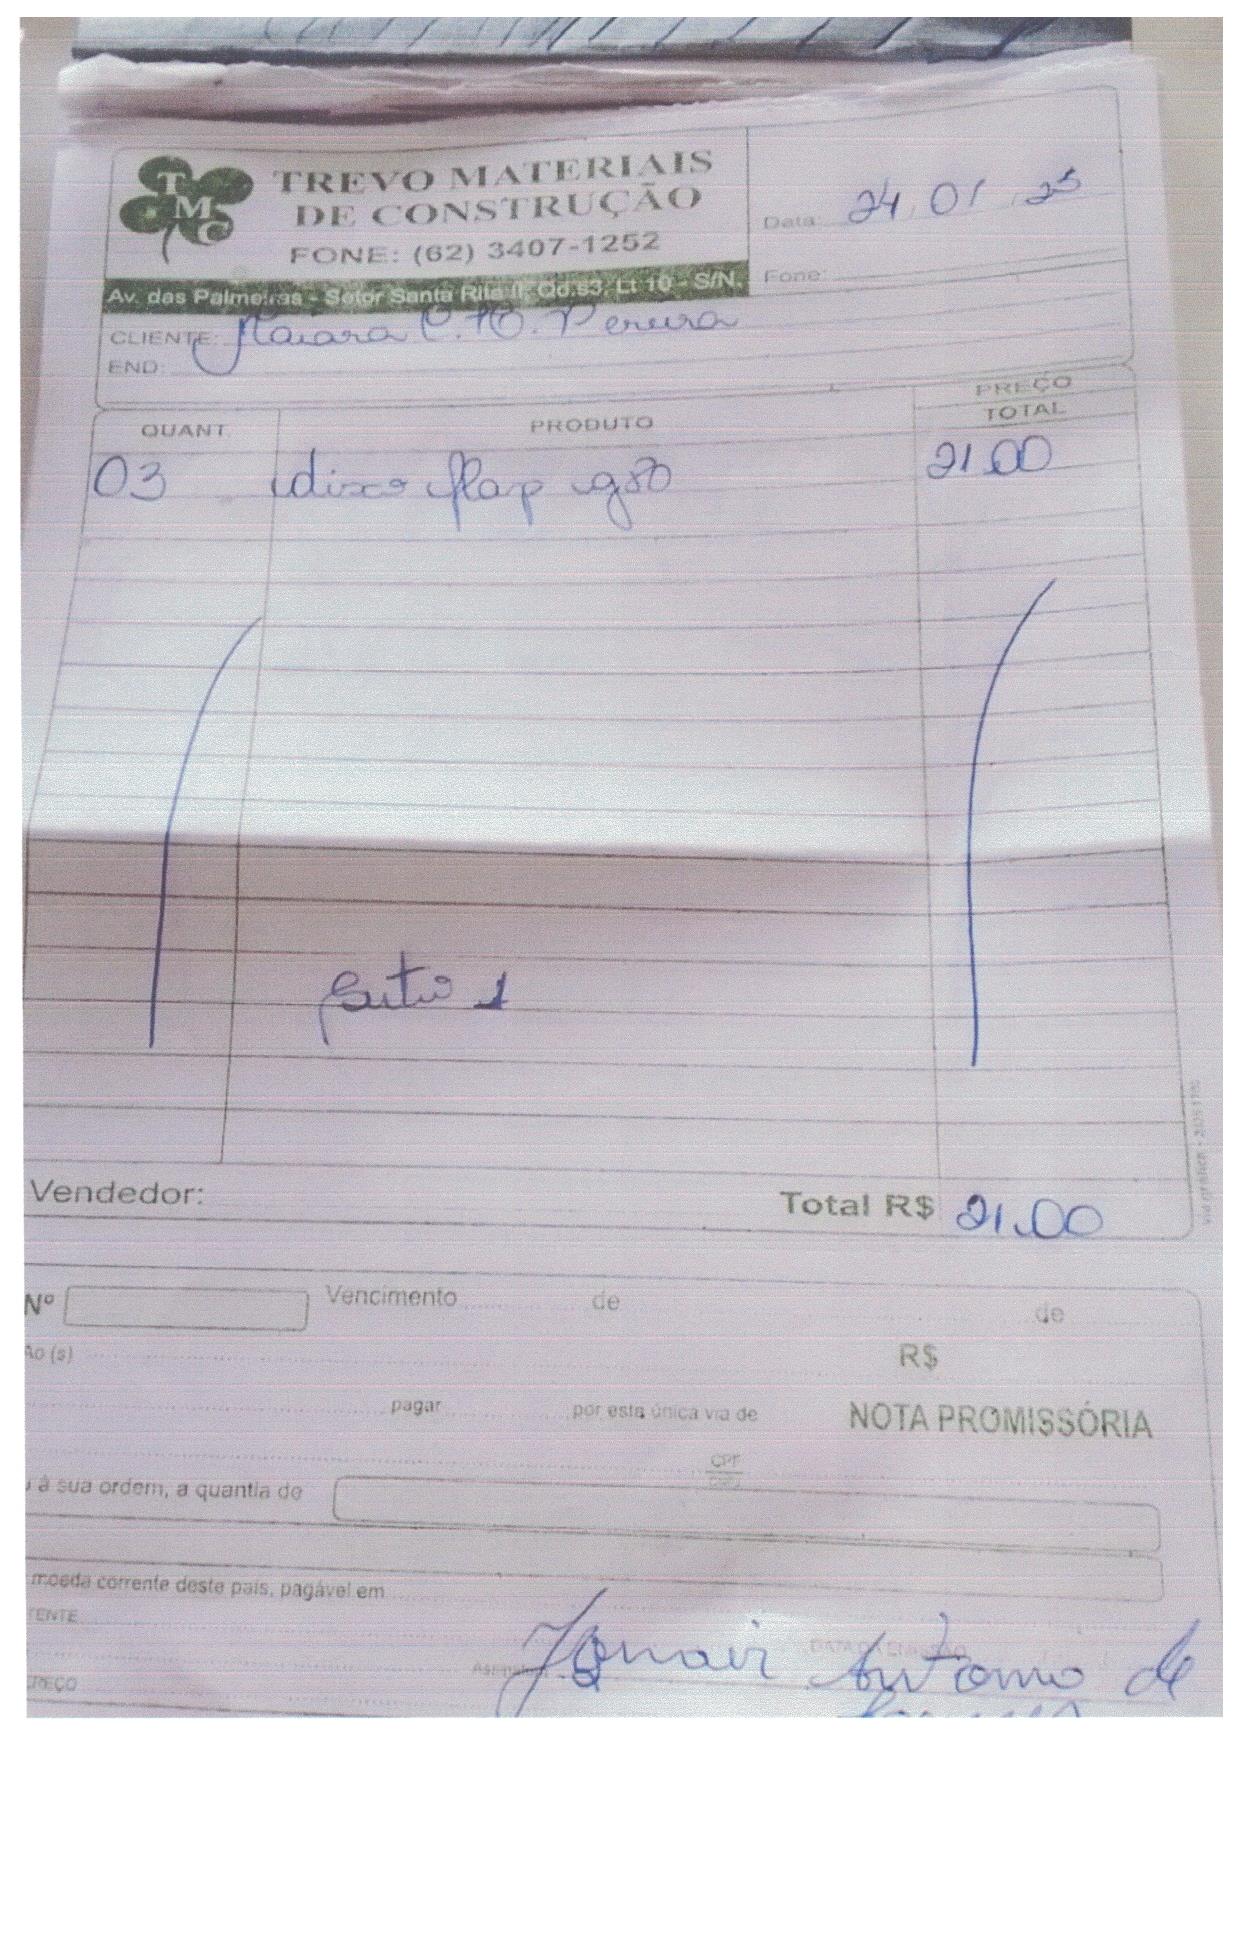 TMC
TREVO MATERIAIS
DE CONSTRUÇÃO
FONE: (62) 3407-1252
Av. das Palmeiras - Setor Santa Rita II, Qd.s3, Lt 10 - S/N.
Data: 24 01 25
Fone:
CLIENTE: Naiara C. Pereira
END:
QUANT. PRODUTO PREÇO TOTAL
03 disco flap g80 21.00
1
Vendedor: Total R$ 21.00
Nº Vencimento de de
Ao (s) R$
pagar por esta única via de NOTA PROMISSÓRIA
CPF
à sua ordem, a quantia de
moeda corrente deste país, pagável em
DATA DA EMISSÃO
Jomair Antonio de